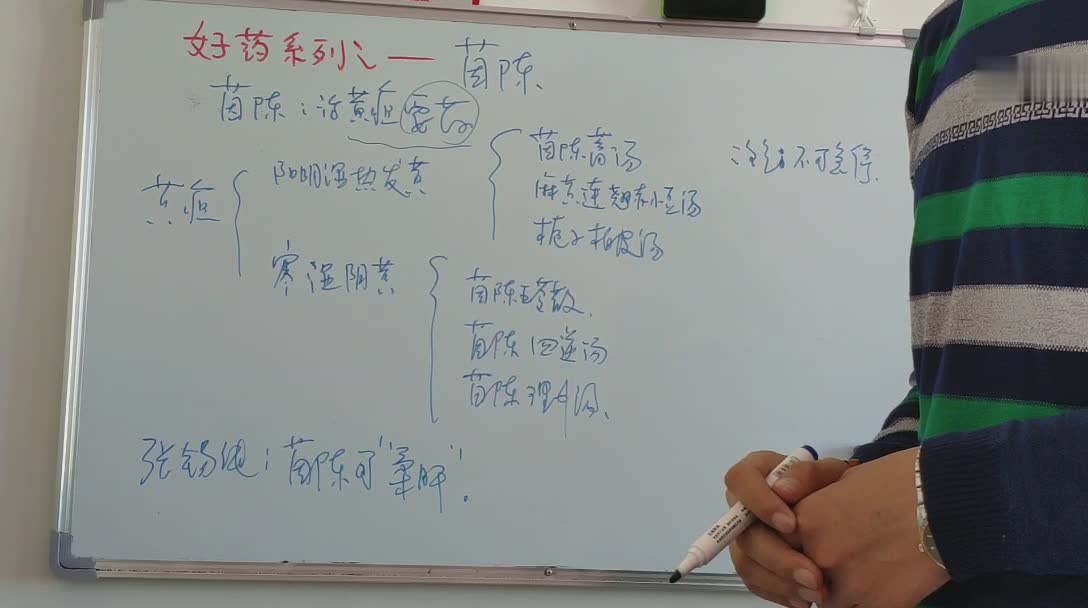 好药系列之一 茵陈
茵陈:治黄疸要药
黄疸
阳明湿热发黄
茵陈蒿汤
麻黄连翘赤小豆汤
栀子柏皮汤
不可
寒湿阴黄
茵陈五苓散
茵陈四逆汤
茵陈理中汤
张锡纯:茵陈可"柔肝"。